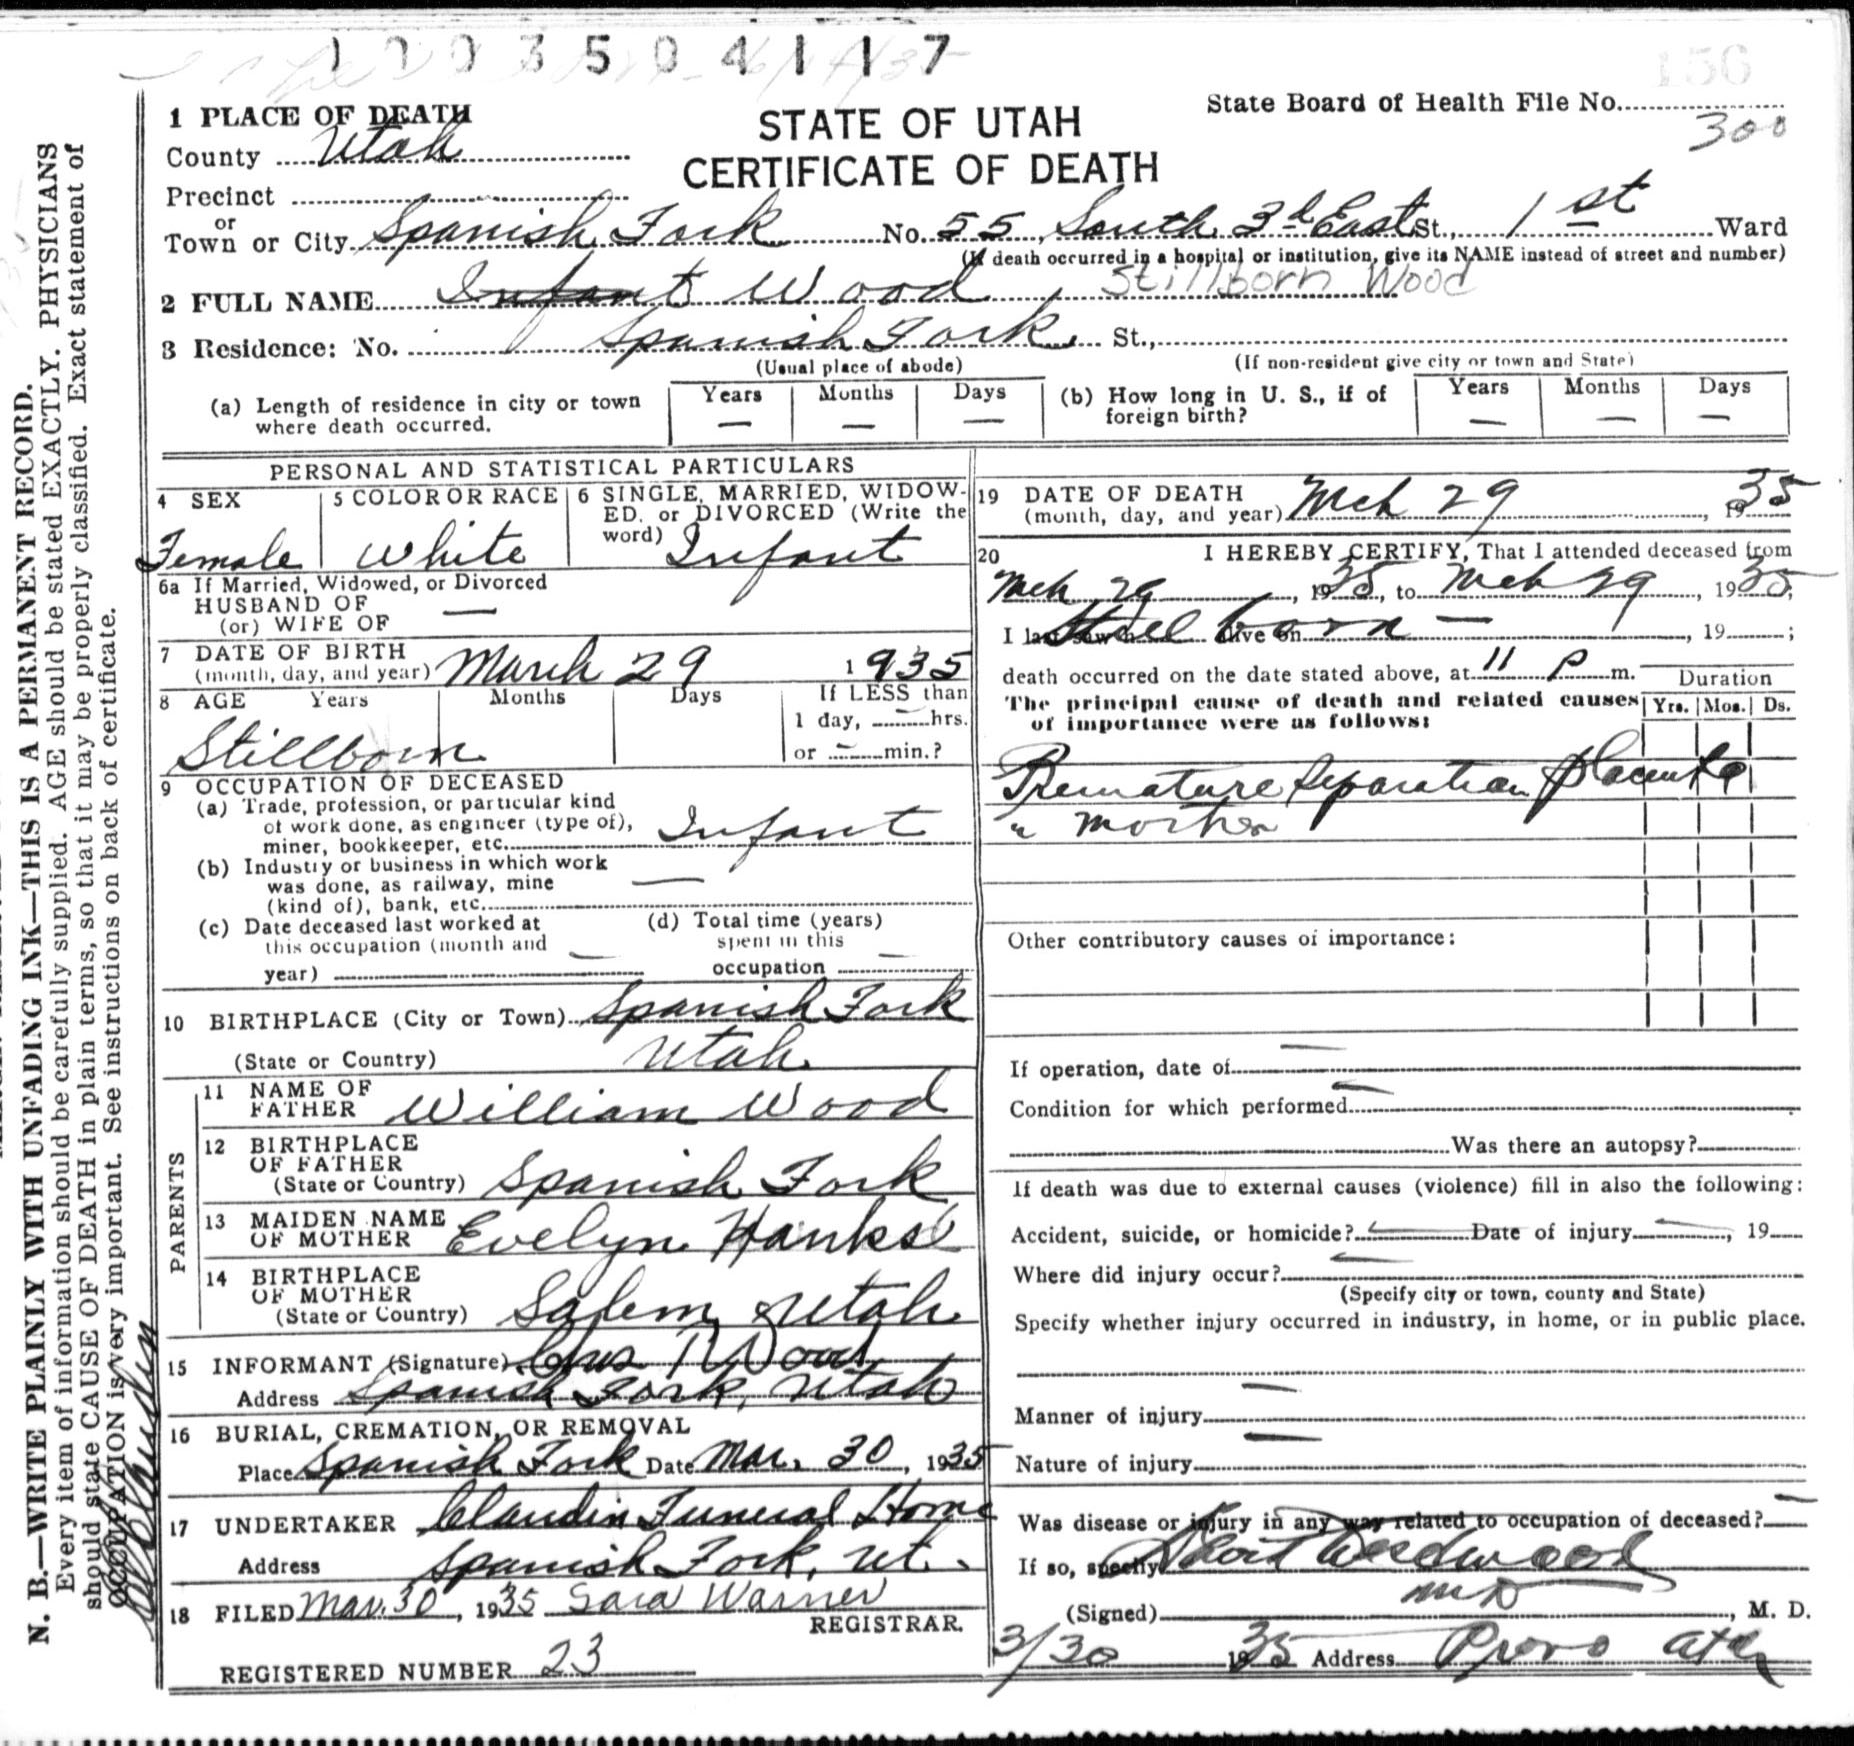 1 2 0 3 5 0 4 1 1 7
156
1 PLACE OF DEATH
STATE OF UTAH
CERTIFICATE OF DEATH
State Board of Health File No.
300
County Utah
Precinct
or
Town or City Spanish Fork No. 55, South 3d East St., 1st Ward
(If death occurred in a hospital or institution, give its NAME instead of street and number)
2 FULL NAME Infant Wood Stillborn Wood
3 Residence: No. Spanish Fork St.,
(Usual place of abode) (If non-resident give city or town and State)
(a) Length of residence in city or town where death occurred. Years — Months — Days —
(b) How long in U. S., if of foreign birth? Years — Months — Days —
PERSONAL AND STATISTICAL PARTICULARS
4 SEX
Female
5 COLOR OR RACE
White
6 SINGLE, MARRIED, WIDOW-
ED, or DIVORCED (Write the
word) Infant
6a If Married, Widowed, or Divorced
HUSBAND OF
(or) WIFE OF —
7 DATE OF BIRTH
(month, day, and year) March 29 1935
8 AGE Years Months Days If LESS than
1 day, ---hrs.
or ---min.?
Stillborn
9 OCCUPATION OF DECEASED
(a) Trade, profession, or particular kind
of work done, as engineer (type of),
miner, bookkeeper, etc. Infant
(b) Industry or business in which work
was done, as railway, mine
(kind of), bank, etc. —
(c) Date deceased last worked at
this occupation (month and
year) —
(d) Total time (years)
spent in this
occupation —
10 BIRTHPLACE (City or Town) Spanish Fork
(State or Country) Utah
PARENTS
11 NAME OF
FATHER William Wood
12 BIRTHPLACE
OF FATHER
(State or Country) Spanish Fork
13 MAIDEN NAME
OF MOTHER Evelyn Hanks
14 BIRTHPLACE
OF MOTHER
(State or Country) Salem, Utah
15 INFORMANT (Signature) Wood
Address Spanish Fork, Utah
16 BURIAL, CREMATION, OR REMOVAL
Place Spanish Fork Date Mar. 30, 1935
17 UNDERTAKER Claudin Funeral Home
Address Spanish Fork, Ut.
18 FILED Mar. 30, 1935 Sara Warner
REGISTRAR.
REGISTERED NUMBER 23
19 DATE OF DEATH
(month, day, and year) Mch 29, 1935
20 I HEREBY CERTIFY, That I attended deceased from
Mch 29, 1935, to Mch 29, 1935;
I last saw h alive on Still born —, 19 ;
death occurred on the date stated above, at 11 P m.
Duration
The principal cause of death and related causes
of importance were as follows:
Yrs. Mos. Ds.
Premature Separation placenta
mother
Other contributory causes of importance:
If operation, date of —
Condition for which performed —
Was there an autopsy?
If death was due to external causes (violence) fill in also the following:
Accident, suicide, or homicide? — Date of injury —, 19
Where did injury occur? —
(Specify city or town, county and State)
Specify whether injury occurred in industry, in home, or in public place.
Manner of injury —
Nature of injury —
Was disease or injury in any way related to occupation of deceased? —
If so, specify
MD
(Signed) , M. D.
3/30 1935 Address Provo Utah
N. B.—WRITE PLAINLY WITH UNFADING INK—THIS IS A PERMANENT RECORD.
Every item of information should be carefully supplied. AGE should be stated EXACTLY. PHYSICIANS
should state CAUSE OF DEATH in plain terms, so that it may be properly classified. Exact statement of
OCCUPATION is very important. See instructions on back of certificate.